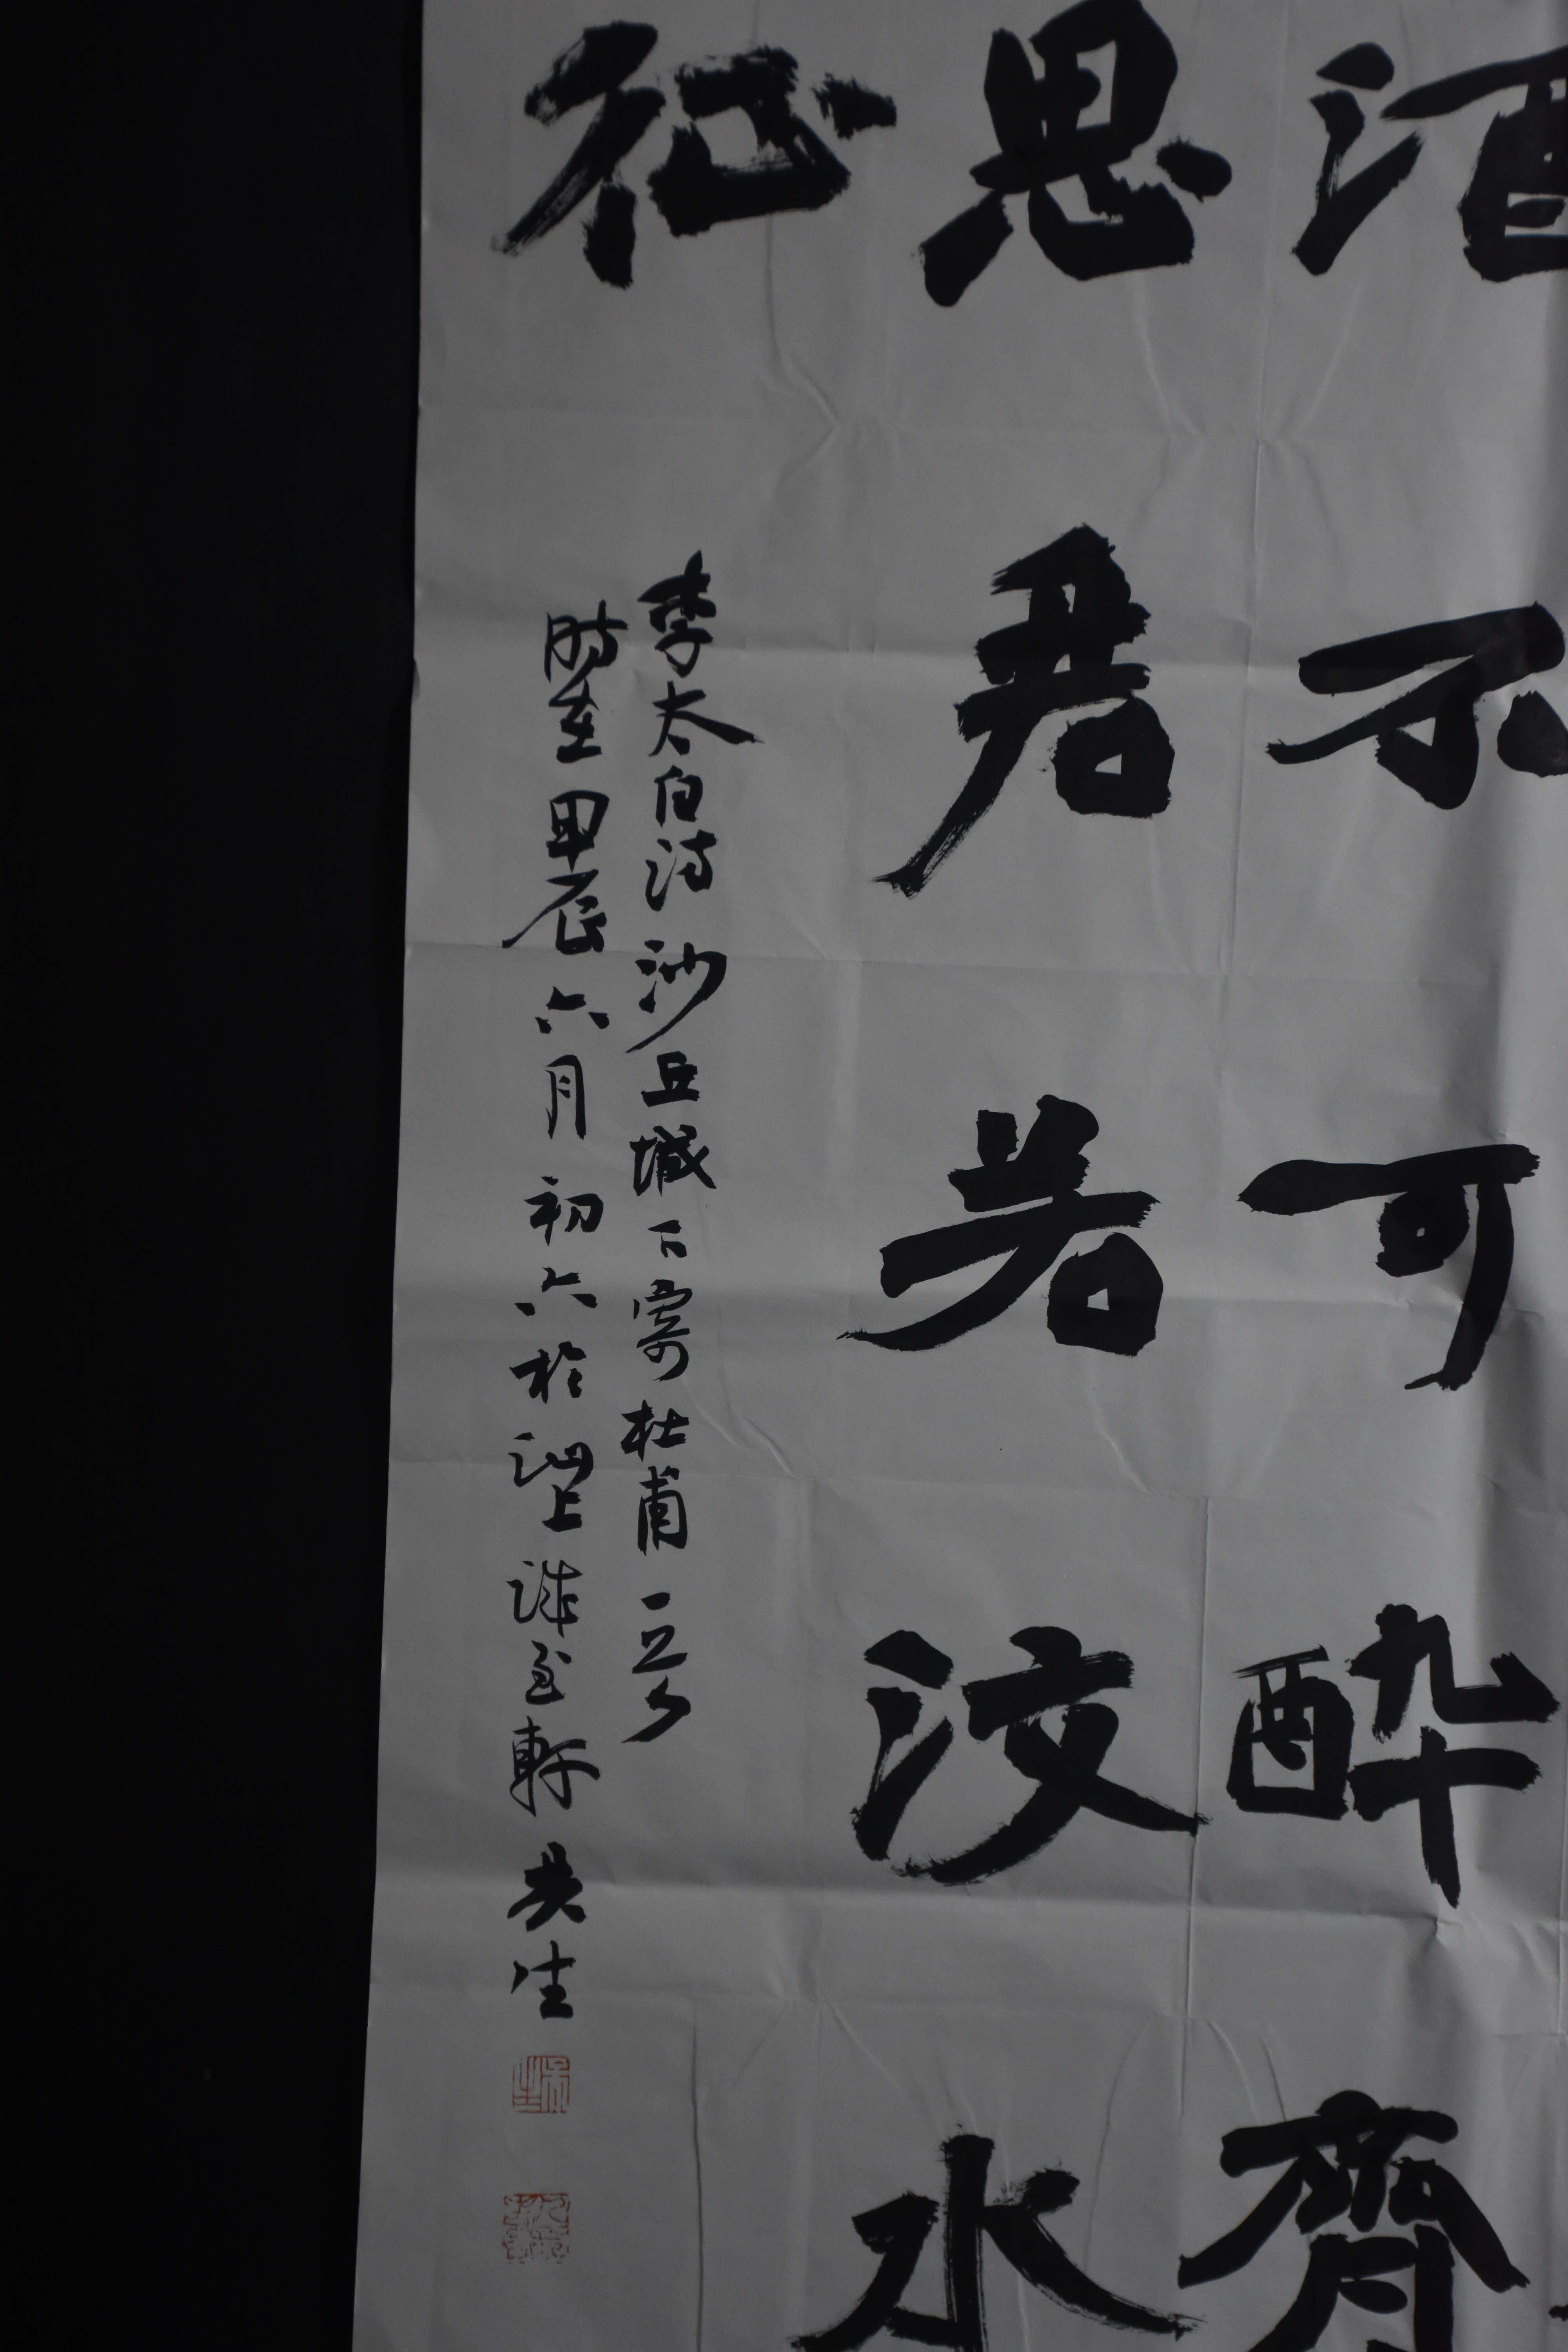 酒不可醉齊
思君若汶水
征
李太白詩沙丘城下寄杜甫一首
時在甲辰六月初六於泗上
軒吳生